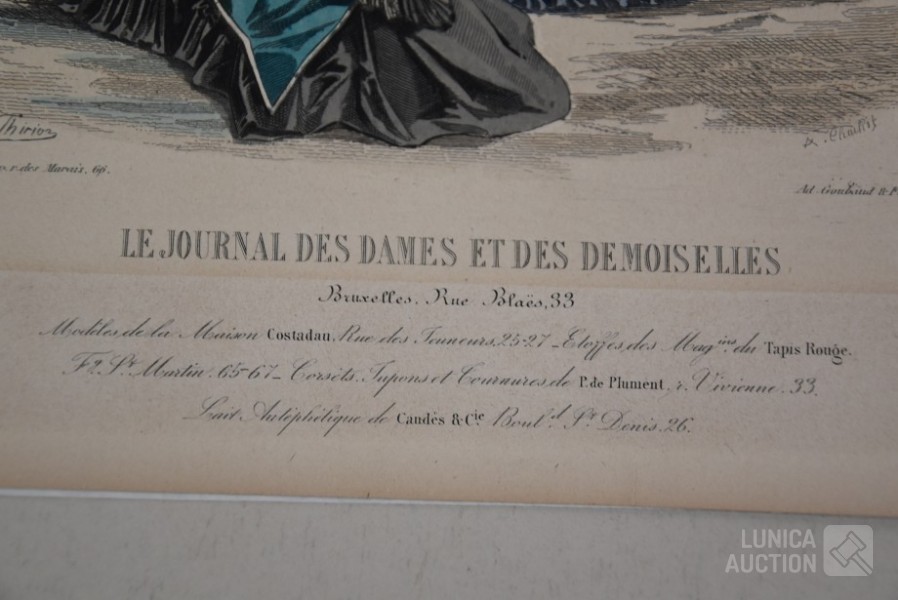 Thirion
A. Chaillot
r. des Marais, 66.
Ad. Goubaud &
LE JOURNAL DES DAMES ET DES DEMOISELLES
Bruxelles, Rue Blaës, 33
Modèles de la Maison Costadau, Rue des Jeuneurs, 25-27 _ Etoffes des Mag.ins du Tapis Rouge.
Fg. St. Martin. 65-67 _ Corsets, Jupons et Tournures de P. de Plument, r. Vivienne. 33.
Lait Antéphélique de Candès & Cie. Boul.d St. Denis. 26.
LUNICA
AUCTION